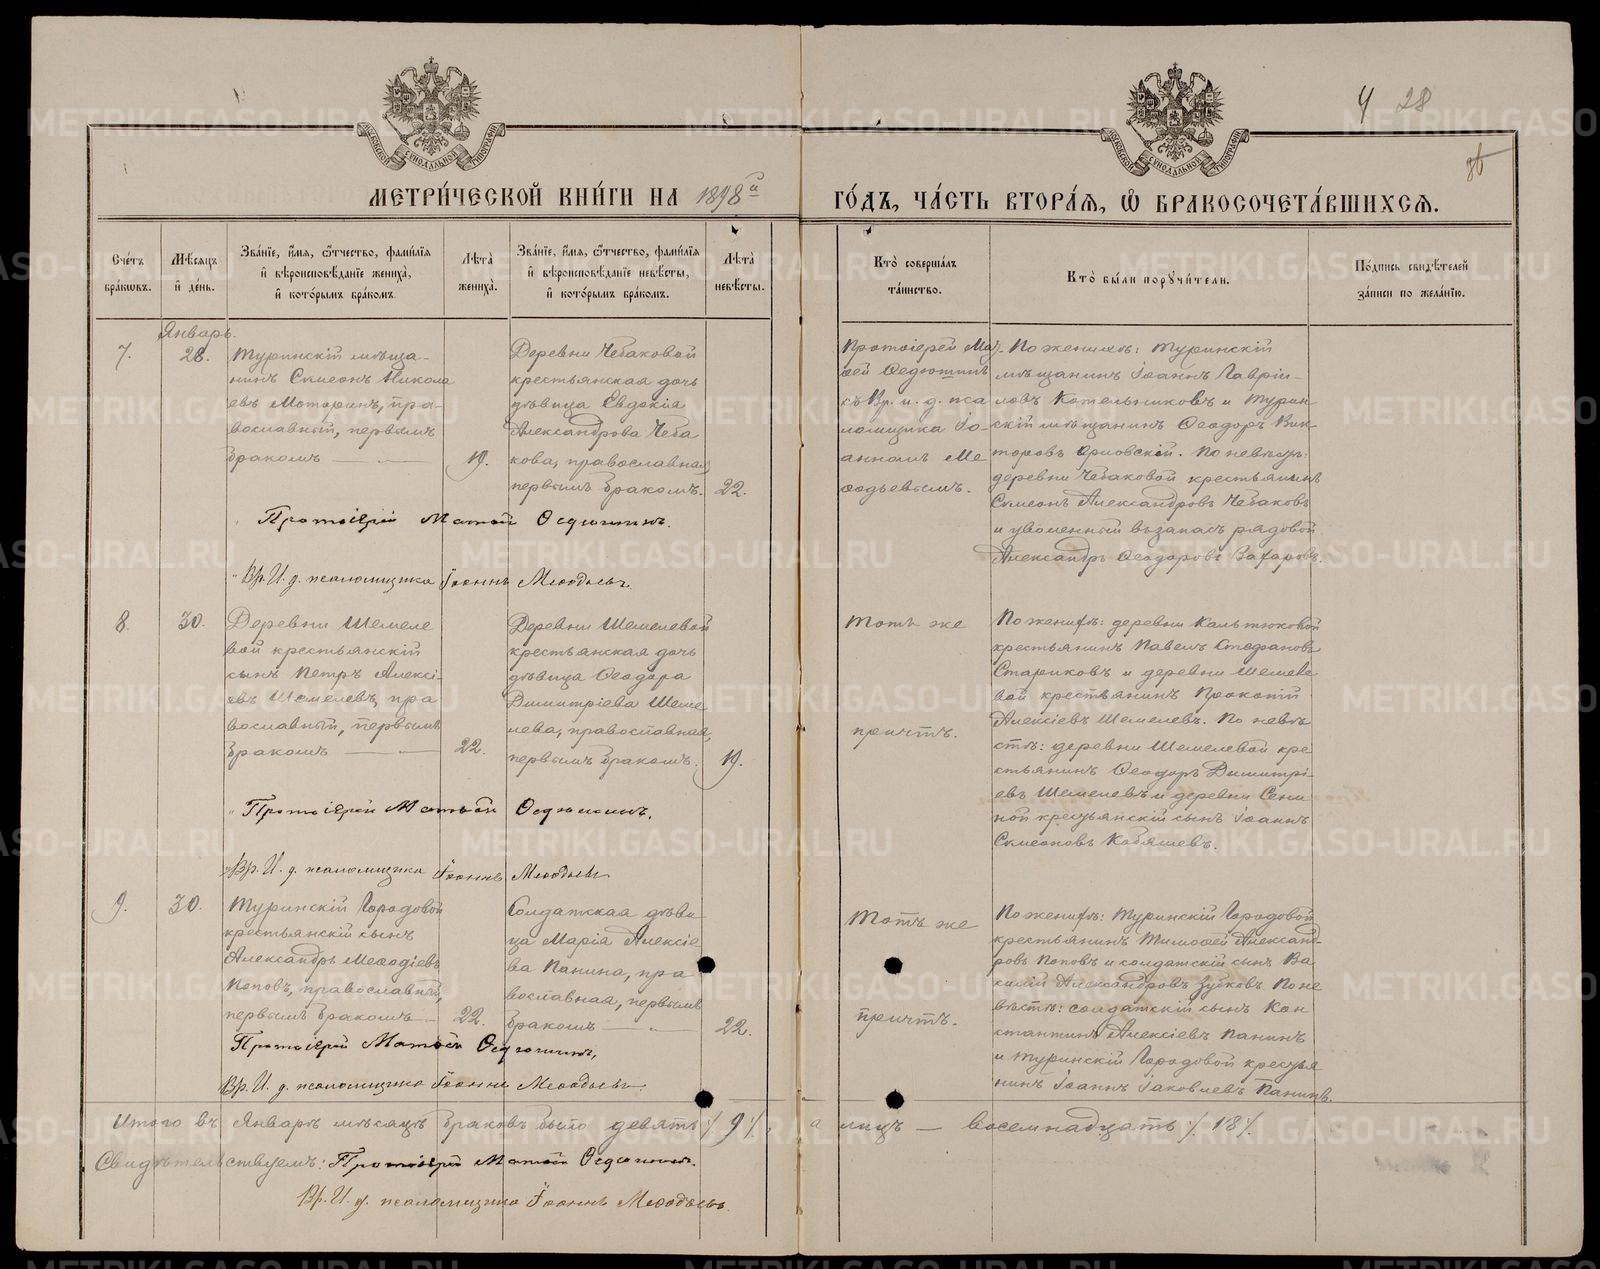 4 28
МЕТРИ́ЧЕСКОЙ КНИ́ГИ НА 1898 ГО́ДЪ, ЧА́СТЬ ВТОРА́Я, Ѽ БРАКОСОЧЕТА́ВШИХСЯ.
Сче́тъ бра́кѡвъ.
Мѣ́сяцъ и҆ де́нь.
Зва́нїе, и҆́мя, ѻ҆́тчество, фами́лїя и҆ вѣроисповѣ́данїе жениха̀, и҆ кото́рымъ бра́комъ.
Лѣ́та̀ жениха̀.
Зва́нїе, и҆́мя, ѻ҆́тчество, фами́лїя и҆ вѣроисповѣ́данїе невѣ́сты, и҆ кото́рымъ бра́комъ.
Лѣ́та̀ невѣ́сты.
Кто̀ соверша́лъ та́инство.
Кто̀ бы́ли порꙋчи́тели.
По́дпись свидѣ́телей за́писи по жела́нїю.
Январь.
7.
28.
Туринскій мѣща-
нинъ Симеонъ Никола
евъ Моторинъ, пра-
вославный, первымъ
бракомъ
19.
Деревни Чебаковой
крестьянская дочь
дѣвица Евдокія
Александрова Чеба
кова, православная,
первымъ бракомъ.
22.
Протоіерей Мат-
ѳей Ѳедюшинъ
съ Вр. и. д. пса
ломщика Іо-
анномъ Ме
ѳодьевымъ.
По женихѣ: Туринскій
мѣщанинъ Іоаннъ Гаврии-
ловъ Котельниковъ и Турин-
скій мѣщанинъ Ѳеодоръ Вик-
торовъ Орловскій. По невѣстѣ:
деревни Чебаковой крестьянинъ
Симеонъ Александровъ Чебаковъ
и уволенный въ запасъ рядовой
Александръ Ѳеодоровъ Захаровъ.
Протоіерей Матѳей Ѳедюшинъ.
Вр. И. д. псаломщика Іоаннъ Меѳодьевъ.
8.
30.
Деревни Шемеле
вой крестьянскій
сынъ Петръ Алексі-
евъ Шемелевъ, пра
вославный, первымъ
бракомъ
22.
Деревни Шемелевой
крестьянская дочь
дѣвица Ѳеодора
Димитріева Шеме
лева, православная,
первымъ бракомъ.
19.
Тотъ же
причтъ.
По женихѣ: деревни Кальтюковой
крестьянинъ Павелъ Стефановъ
Стариковъ и деревни Шемеле
вой крестьянинъ Прокопій
Алексіевъ Шемелевъ. По невѣ
стѣ: деревни Шемелевой кре
стьянинъ Ѳеодоръ Димитрі-
евъ Шемелевъ и деревни Сени
ной крестьянскій сынъ Іоаннъ
Симеоновъ Кобяшевъ.
Протоіерей Матѳей Ѳедюшинъ.
Вр. И. д. псаломщика Іоаннъ Меѳодьевъ
9.
30.
Туринскій Городовой
крестьянскій сынъ
Александръ Меѳодіевъ
Поповъ, православный,
первымъ бракомъ
22.
Солдатская дѣви
ца Марія Алексіе
ва Панина, пра
вославная, первымъ
бракомъ
22.
Тотъ же
причтъ.
По женихѣ: Туринскій Городовой
крестьянинъ Тимоѳей Александ-
ровъ Поповъ и солдатскій сынъ Ва
силій Александровъ Зубковъ. По не
вѣстѣ: солдатскій сынъ Кон
стантинъ Алексіевъ Панинъ
и Туринскій Городовой крестья
нинъ Іоаннъ Іаковлевъ Панинъ.
Протоіерей Матѳей Ѳедюшинъ.
Вр. И. д. псаломщика Іоаннъ Меѳодьевъ.
Итого въ Январѣ мѣсяцѣ браковъ было девять /9/, а лицъ — восемнадцать /18/.
Свидѣтельствуемъ: Протоіерей Матѳей Ѳедюшинъ.
Вр. И. д. псаломщика Іоаннъ Меѳодьевъ.
METRIKI.GASO-URAL.RU